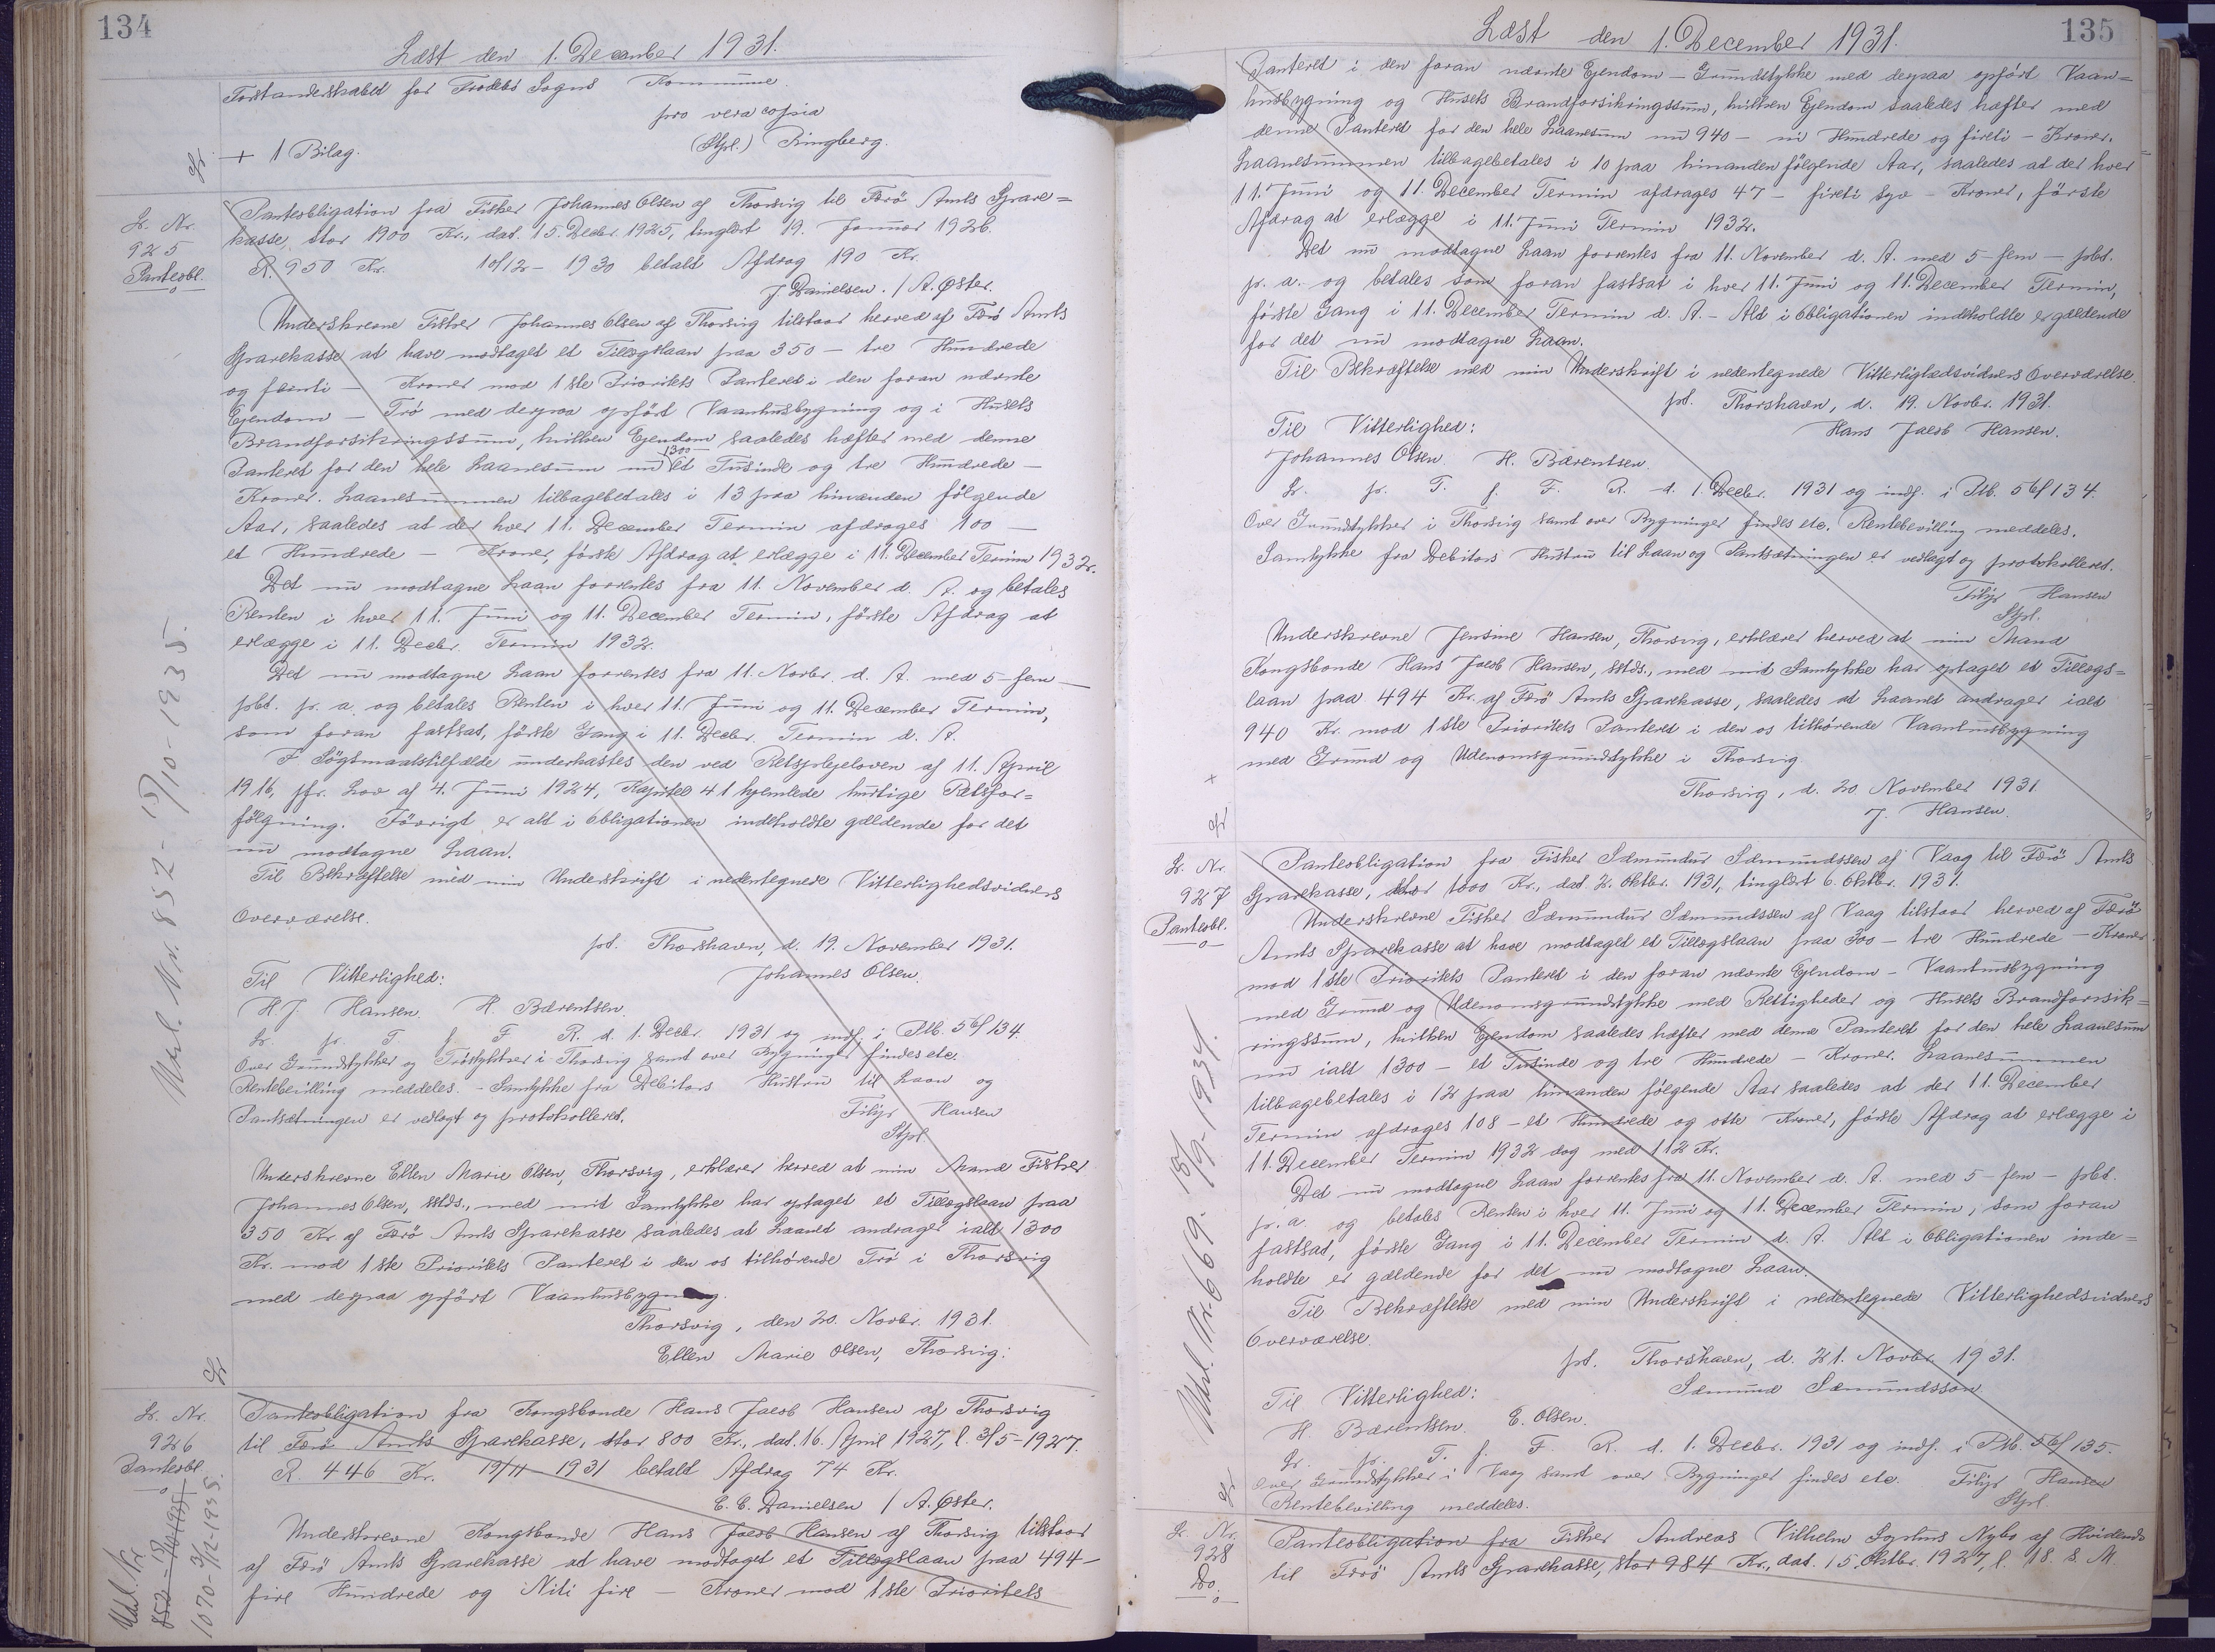 134
Læst den 1. December 1931.
Forstanderskabet for Frodebø Sogns Kommune
pro vera copia
+ 1 Bilag.
(Stpl.) Ringberg.
Lr. Nr.
925
Panteobl.
Panteobligation fra Fisker Johannes Olsen af Thorsvig til Færø Amts Spare=
kasse, stor 1900 Kr., dat. 15. Decbr. 1925, tinglæst 19. Januar 1926.
R. 950 Kr. 10/12 - 1930 betalt Afdrag 190 Kr.
J. Danielsen. / A. Øster.
Underskrevne Fisker Johannes Olsen af Thorsvig tilstaar herved af Færø Amts
Sparekasse at have modtaget et Tillægslaan paa 350 - tre Hundrede
og femti - Kroner mod 1ste Prioritets Panteret i den foran nævnte
Ejendom - Trø med derpaa opført Vaanhusbygning og i Husets
Brandforsikringssum, hvilken Ejendom saaledes hæfter med denne
Panteret for den hele Laanesum nu 1300 - et Tusinde og tre Hundrede -
Kroner. Laanesummen tilbagebetales i 13 paa hinanden følgende
Aar, saaledes at der hver 11. December Termin afdrages 100 -
et Hundrede - Kroner, første Afdrag at erlægge i 11. December Termin 1932.
Det nu modtagne Laan forrentes fra 11. November d. A. og betales
Renten i hver 11. Juni og 11. December Termin, første Afdrag at
erlægge i 11. Decbr. Termin 1932.
Det nu modtagne Laan forrentes fra 11. Novbr. d. A. med 5 - fem -
pCt. pr. a. og betales Renten i hver 11. Juni og 11. December Termin,
som foran fastsat, første Gang i 11. Decbr. Termin d. A.
I Søgsmaalstilfælde underkastes den ved Retsplejeloven af 11. April
1916, jfr. Lov af 4. Juni 1924, Kapitel 41 hjemlede hurtige Retsfor=
følgning. Iøvrigt er alt i Obligationen indeholdte gældende for det
nu modtagne Laan.
Til Bekræftelse med min Underskrift i nedentegnede Vitterlighedsvidners
Overværelse.
pt. Thorshavn, d. 19. November 1931.
Til Vitterlighed:
Johannes Olsen.
H. J. Hansen. H. Bærentsen.
Lr. pr. T. f. F. R. d. 1. Decbr. 1931 og indf. i Ptb. 56/134.
Over Grundstykker og Trøstykker i Thorsvig samt over Bygninger findes etc.
Rentebevilling meddeles. - Samtykke fra Debitors Hustru til Laan og
Pantsætningen er vedlagt og protokolleret.
Filip Hansen
Stpl.
Underskrevne Ellen Marie Olsen, Thorsvig, erklærer herved at min Mand Fisker
Johannes Olsen, sstds., med mit Samtykke har optaget et Tillægslaan paa
350 Kr. af Færø Amts Sparekasse saaledes at Laanet andrager ialt 1300
Kr. mod 1ste Prioritets Panteret i den os tilhørende Trø i Thorsvig
med derpaa opført Vaanhusbygning.
Thorsvig, den 20. Novbr. 1931.
Ellen Marie Olsen, Thorsvig.
Udsl. Nr. 852 - 15/10 - 1935.
Lr. Nr.
926
Panteobl.
Panteobligation fra Kongsbonde Hans Jacob Hansen af Thorsvig
til Færø Amts Sparekasse, stor 800 Kr., dat. 16. April 1927, l. 3/5 - 1927.
R. 446 Kr. 19/11 1931 betalt Afdrag 74 Kr.
E. E. Danielsen / A. Øster.
Underskrevne Kongsbonde Hans Jacob Hansen af Thorsvig tilstaar
af Færø Amts Sparekasse at have modtaget et Tillægslaan paa 494 -
fire Hundrede og Niti fire - Kroner mod 1ste Prioritets
Udsl. Nr.
852 - 15/10 1935
1070 - 3/12 - 1935.
135
Læst den 1. December 1931.
Panteret i den foran nævnte Ejendom - Grundstykke med derpaa opført Vaan=
husbygning og Husets Brandforsikringssum, hvilken Ejendom saaledes hæfter med
denne Panteret for den hele Laanesum nu 940 - ni Hundrede og fireti - Kroner.
Laanesummen tilbagebetales i 10 paa hinanden følgende Aar, saaledes at der hver
11. Juni og 11. December Termin afdrages 47 - fireti syv - Kroner, første
Afdrag at erlægge i 11. Juni Termin 1932.
Det nu modtagne Laan forrentes fra 11. November d. A. med 5 - fem - pCt.
pr. a. og betales som foran fastsat i hver 11. Juni og 11. December Termin,
første Gang i 11. December Termin d. A. - Alt i Obligationen indeholdte er gældende
for det nu modtagne Laan.
Til Bekræftelse med min Underskrift i nedentegnede Vitterlighedsvidners Overværelse.
pt. Thorshavn, d. 19. Novbr. 1931.
Til Vitterlighed:
Hans Jacob Hansen.
Johannes Olsen. H. Bærentsen.
Lr. pr. T. f. F. R. d. 1. Decbr. 1931 og indf. i Ptb. 56/134.
Over Grundstykker i Thorsvig samt over Bygninger findes etc. Rentebevilling meddeles.
Samtykke fra Debitors Hustru til Laan og Pantsætningen er vedlagt og protokolleret.
Filip Hansen
Stpl.
Underskrevne Jensine Hansen, Thorsvig, erklærer herved at min Mand
Kongsbonde Hans Jacob Hansen, sstds., med mit Samtykke har optaget et Tillægs=
laan paa 494 Kr. af Færø Amts Sparekasse, saaledes at Laanet andrager ialt
940 Kr. mod 1ste Prioritets Panteret i den os tilhørende Vaanhusbygning
med Grund og Udenomsgrundstykke i Thorsvig
Thorsvig, d. 20. November 1931
J. Hansen.
Lr. Nr.
927
Panteobl.
Panteobligation fra Fisker Sæmundur Sæmundssen af Vaag til Færø Amts
Sparekasse, stor 1000 Kr., dat 2. Oktbr. 1931, tinglæst 6. Oktbr. 1931.
Underskrevne Fisker Sæmundur Sæmundssen af Vaag tilstaar herved af Færø
Amts Sparekasse at have modtaget et Tillægslaan paa 300 - tre Hundrede - Kroner
mod 1ste Prioritets Panteret i den foran nævnte Ejendom - Vaanhusbygning
med Grund og Udenomsgrundstykke med Rettigheder og Husets Brandforsik=
ringssum, hvilken Ejendom saaledes hæfter med denne Panteret for den hele Laanesum
nu ialt 1300 - et Tusinde og tre Hundrede - Kroner. Laanesummen
tilbagebetales i 12 paa hinanden følgende Aar saaledes at der 11. December
Termin afdrages 108 - et Hundrede og otte Kroner, første Afdrag at erlægge i
11. December Termin 1932 dog med 112 Kr.
Det nu modtagne Laan forrentes fra 11. November d. A. med 5 - fem - pCt.
pr. a. og betales Renten i hver 11. Juni og 11. December Termin, som foran
fastsat, første Gang i 11. December Termin d. A. Alt i Obligationen inde=
holdte er gældende for det nu modtagne Laan.
Til Bekræftelse med min Underskrift i nedentegnede Vitterlighedsvidners
Overværelse.
pt. Thorshavn, d. 21. Novbr. 1931.
Til Vitterlighed:
Sæmund Sæmundsson.
H. Bærentsen. E. Olsen.
Lr. pr. T. f. F. R. d. 1. Decbr. 1931 og indf. i Ptb. 56/135.
Over Grundstykker i Vaag samt over Bygninger findes etc. Filip Hansen
Rentebevilling meddeles. Stpl.
Udsl. Nr. 669. 18/9 - 1934.
Lr. Nr.
928
Do.
Panteobligation fra Fisker Andreas Vilhelm Nybo af Hvidenæs
til Færø Amts Sparekasse, stor 984 Kr., dat. 15. Oktbr. 1927, l. 18. s. M.